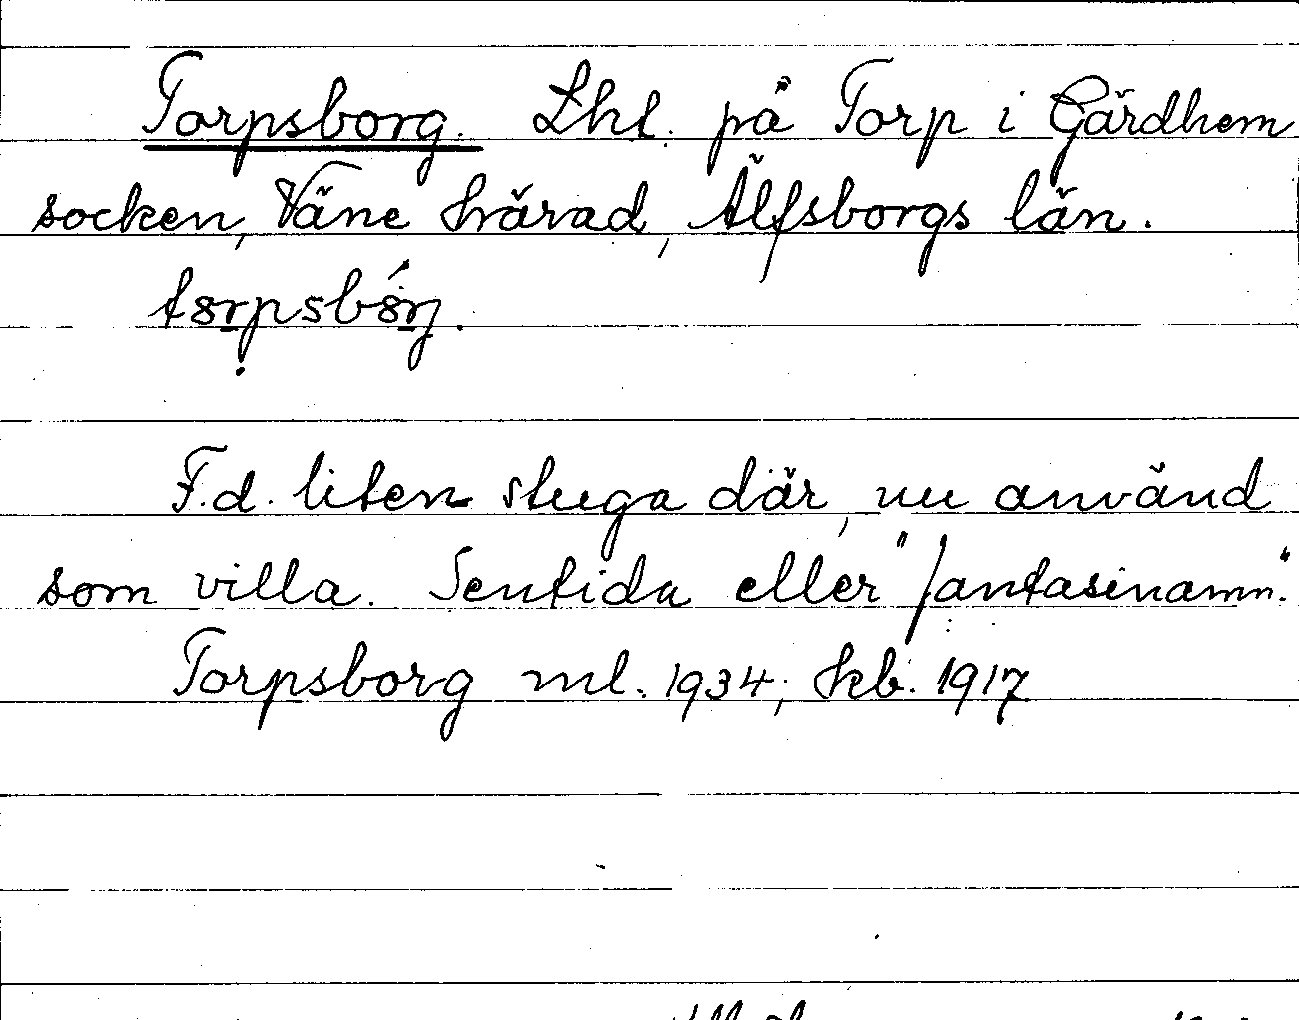 Torpsborg. Lht. på Torp i Gärdhem
socken, Väne härad, Älfsborgs län.
F.d. liten stuga där, nu använd
som villa. Sentida eller "fantasinamn".
Torpsborg ml. 1934; hkb. 1917